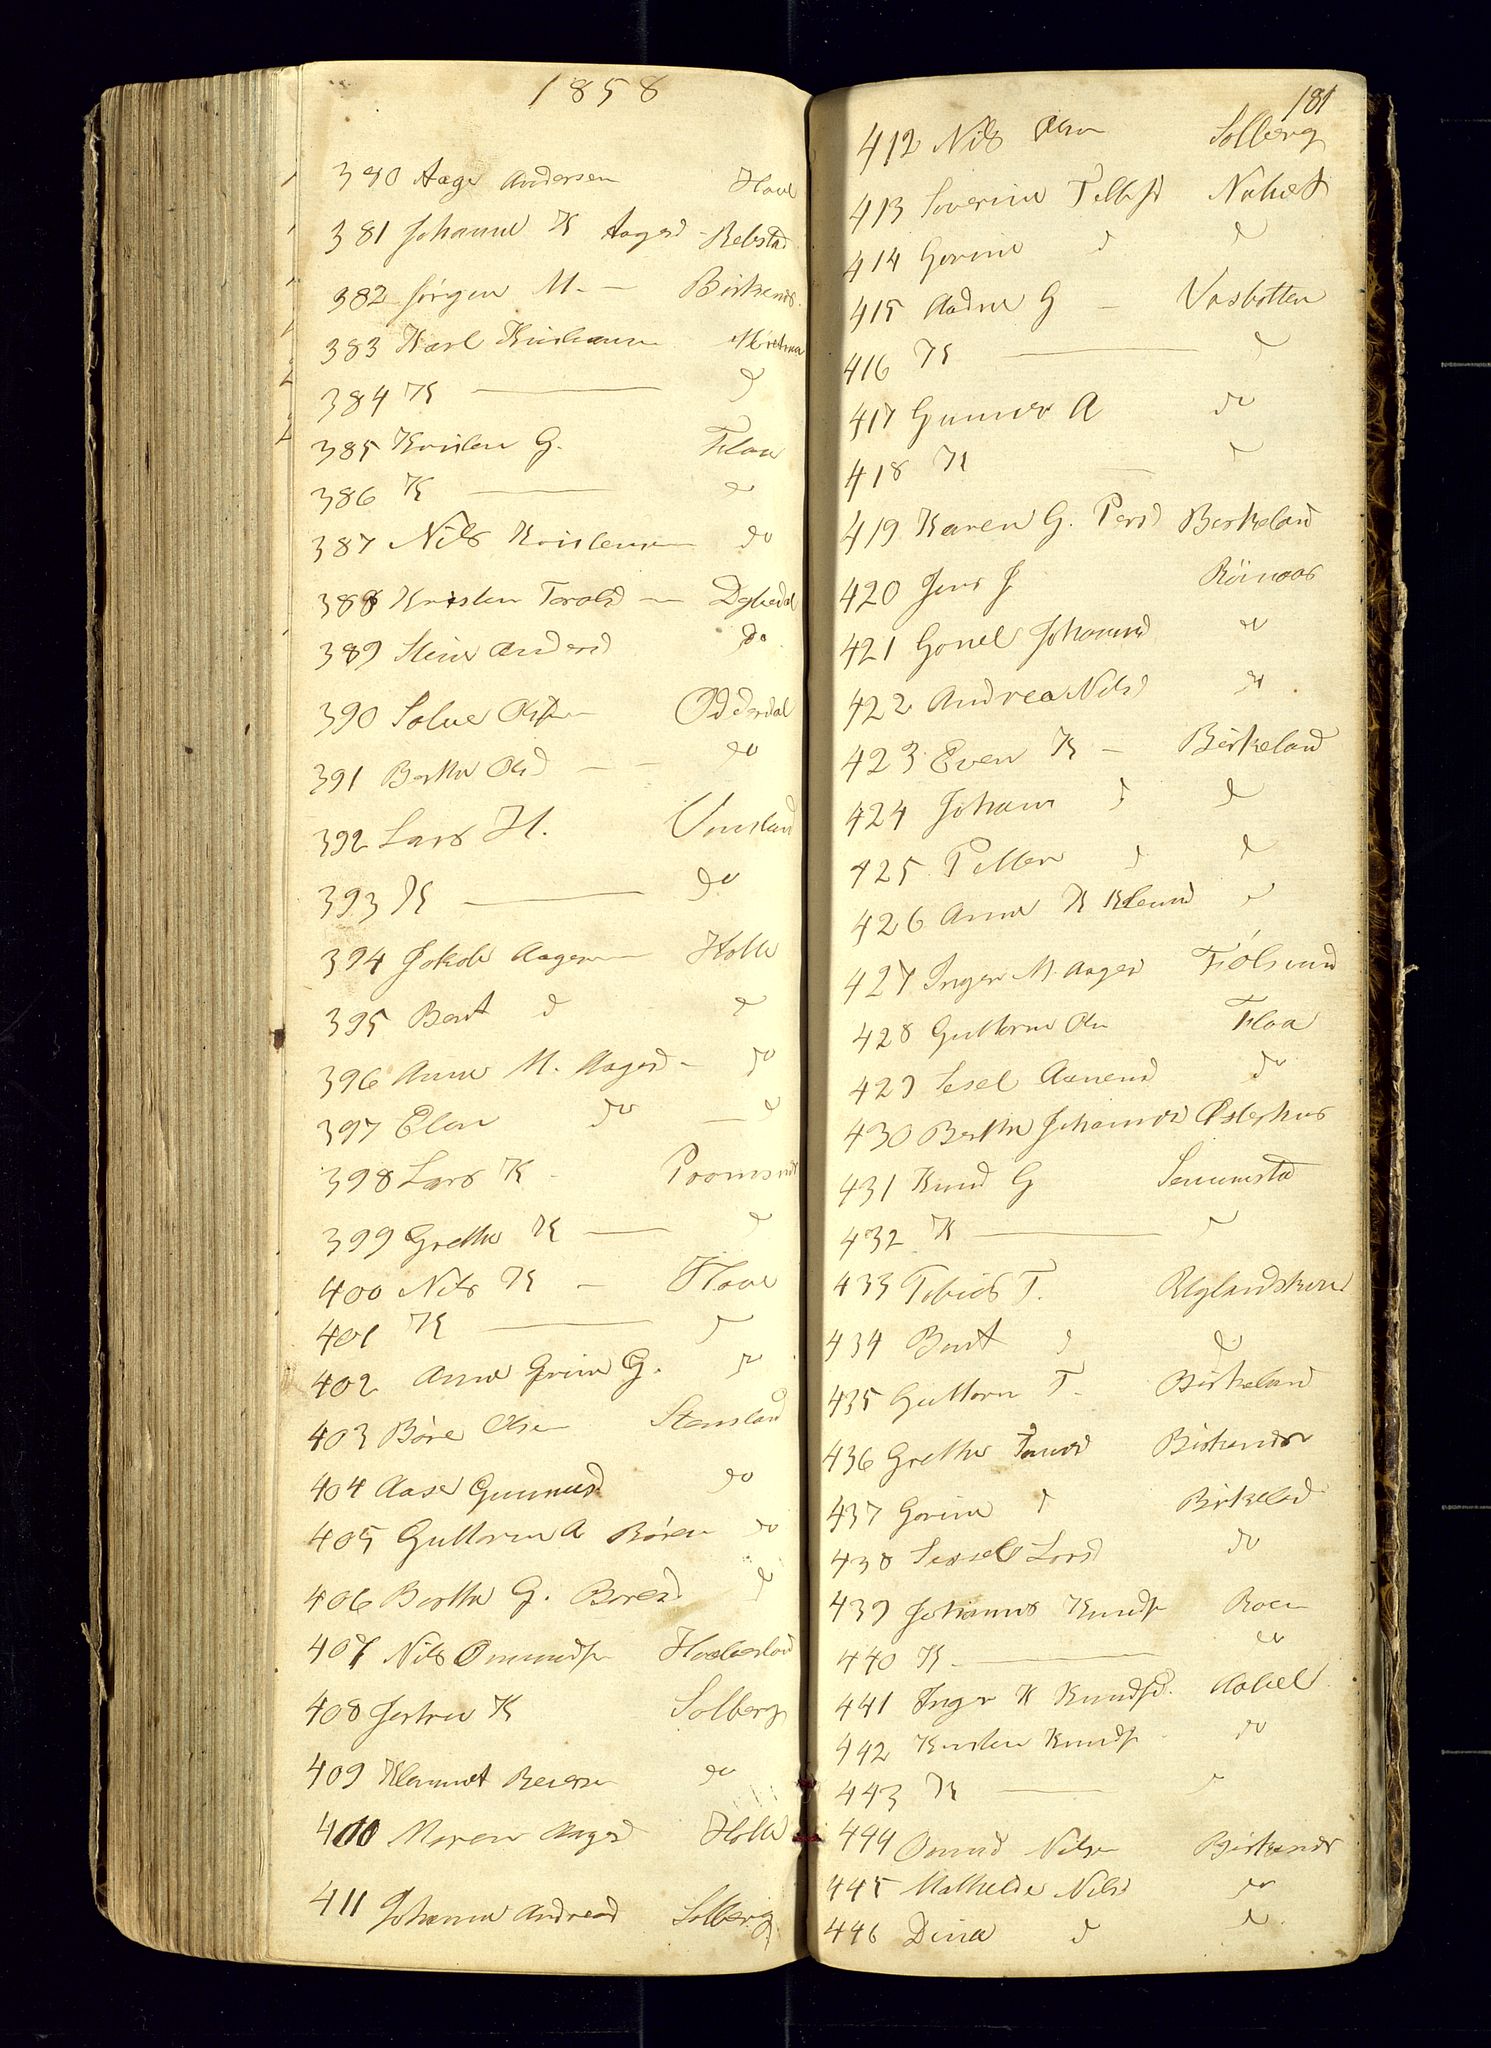 1858
380 Aage Andersen Hove
381 Johanne K Aagesd - Rebstad
382 Jørgen M. — Birkenes
383 Karl
384 K — d
385 Kristen G. Floa
386 K — do
387 Nils Kristensen do
388 Kristen Terolds —
389 Stine Andersd do
390 Solve Olsen — Odderdal
391 Berthe Olsd — — do
392 Lars H. Vensland
393 K — do
394 Jakob Aagesen Holte
395 Bent d d
396 Anne M. Aagesd — do
397 Elen do — d
398 Lars K -
399 Grethe K — d
400 Nils K — Hove
401 K — d
402 Anne G. do
403 Børe Olsen Stensland
404 Aase Gunnusd do
405 Guttorm A Børen do
406 Berthe G. Boresd d
407 Nils Omundsn
408 K Solberg
409 Klemmet do
410 Maren Aagesd Holte
411 Johanne Andreasd Solberg
181
412 Nils Olsen Solberg
413 Severine Tellefsd
414 Gorine d d
415 Aadne G — Vasbotten
416 K — d
417 Gunner A do
418 K — d
419 Karen G. Persd Berkeland
420 Jens J Römoos
421 Gonel Johannsd do
422 Andrea Nilsd do
423 Even K — Birkeland
424 Johans d d
425 Petter d d
426 Anne K Klemd d
427 Inger M. Aagesd
428 Guttorm Olsn Floa
429 Sesel Aanensd do
430 Berthe Johannsd Østerhus
431 Knud G Senumstad
432 K — d
433 Tobias T. Ryglandskoven
434 Bent d d
435 Guttorm T. Birkeland
436 Grethe Birkenes
437 Gorine d Birkeland
438 Sessel Larsd do
439 Johannes Knudsn Roen
440 K — do
441 Inger K Knudsd. Aabel
442 Kirsten Knudsn do
443 K — d
444 Omund Nilsn Birkenes
445 Mathilde Nilsd do
446 Dina d d